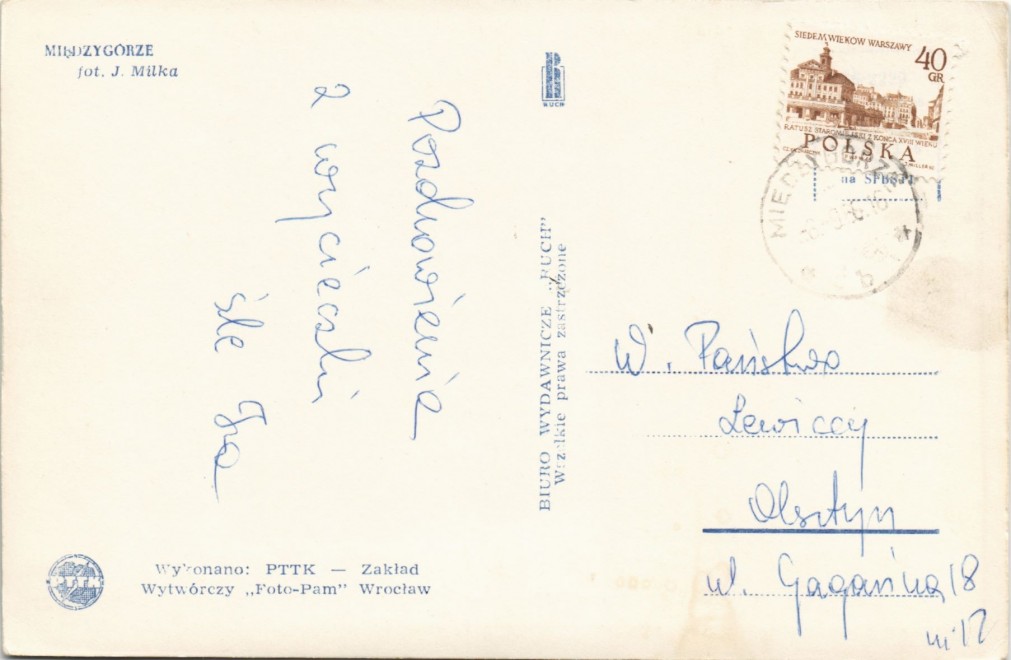 MIĘDZYGÓRZE
fot. J. Milka
Pozdrowienia
z wycieczki
śle Iza
Wykonano: PTTK — Zakład
Wytwórczy „Foto-Pam” Wrocław
RUCH
BIURO WYDAWNICZE „RUCH”
Wszelkie prawa zastrzeżone
SIEDEM WIEKÓW WARSZAWY
40
GR
RATUSZ STAROMIEJSKI Z KOŃCA XVIII WIEKU
POLSKA
na
W. Państwo
Lewiccy
Olsztyn
ul. Gagarina 18
m 12